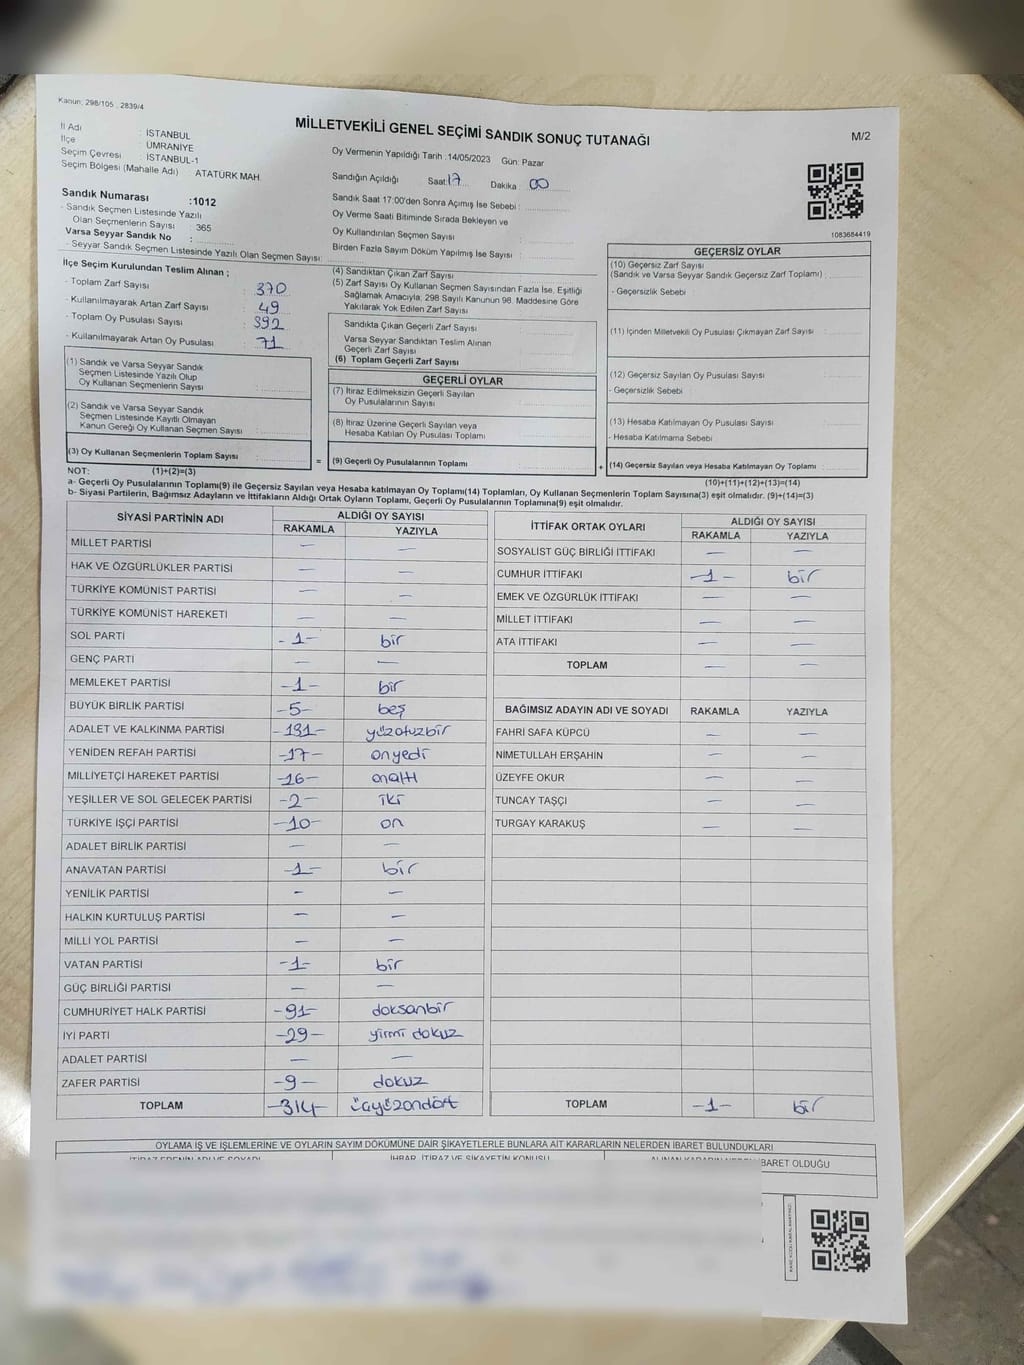 Kanun: 298/105 2839/4
MİLLETVEKİLİ GENEL SEÇİMİ SANDIK SONUÇ TUTANAĞI
M/2
İl Adı : İSTANBUL
İlçe : ÜMRANİYE
Seçim Çevresi : İSTANBUL-1
Seçim Bölgesi (Mahalle Adı) : ATATÜRK MAH.
Oy Vermenin Yapıldığı Tarih :14/05/2023 Gün: Pazar
Sandığın Açıldığı Saat:17 Dakika :00
Sandık Saat 17:00'den Sonra Açımış İse Sebebi :
Oy Verme Saati Bitiminde Sırada Bekleyen ve
Oy Kullandırılan Seçmen Sayısı :
Birden Fazla Sayım Döküm Yapılmış İse Sayısı :
1083684419
Sandık Numarası :1012
- Sandık Seçmen Listesinde Yazılı
Olan Seçmenlerin Sayısı : 365
Varsa Seyyar Sandık No :
- Seyyar Sandık Seçmen Listesinde Yazılı Olan Seçmen Sayısı:
İlçe Seçim Kurulundan Teslim Alınan ;
- Toplam Zarf Sayısı : 370
- Kullanılmayarak Artan Zarf Sayısı : 49
- Toplam Oy Pusulası Sayısı : 392
- Kullanılmayarak Artan Oy Pusulası : 71
(1) Sandık ve Varsa Seyyar Sandık
Seçmen Listesinde Yazılı Olup
Oy Kullanan Seçmenlerin Sayısı :
(2) Sandık ve Varsa Seyyar Sandık
Seçmen Listesinde Kayıtlı Olmayan
Kanun Gereği Oy Kullanan Seçmen Sayısı :
(3) Oy Kullanan Seçmenlerin Toplam Sayısı :
(4) Sandıktan Çıkan Zarf Sayısı :
(5) Zarf Sayısı Oy Kullanan Seçmen Sayısından Fazla İse, Eşitliği
Sağlamak Amacıyla, 298 Sayılı Kanunun 98. Maddesine Göre
Yakılarak Yok Edilen Zarf Sayısı :
Sandıkta Çıkan Geçerli Zarf Sayısı :
Varsa Seyyar Sandıktan Teslim Alınan
Geçerli Zarf Sayısı :
(6) Toplam Geçerli Zarf Sayısı :
GEÇERLİ OYLAR
(7) İtiraz Edilmeksizin Geçerli Sayılan
Oy Pusulalarının Sayısı :
(8) İtiraz Üzerine Geçerli Sayılan veya
Hesaba Katılan Oy Pusulası Toplamı :
= (9) Geçerli Oy Pusulalarının Toplamı :
GEÇERSİZ OYLAR
(10) Geçersiz Zarf Sayısı
(Sandık ve Varsa Seyyar Sandık Geçersiz Zarf Toplamı) :
- Geçersizlik Sebebi :
(11) İçinden Milletvekili Oy Pusulası Çıkmayan Zarf Sayısı :
(12) Geçersiz Sayılan Oy Pusulası Sayısı :
- Geçersizlik Sebebi :
(13) Hesaba Katılmayan Oy Pusulası Sayısı :
- Hesaba Katılmama Sebebi :
+ (14) Geçersiz Sayılan veya Hesaba Katılmayan Oy Toplamı :
NOT: (1)+(2)=(3)
(10)+(11)+(12)+(13)=(14)
a- Geçerli Oy Pusulalarının Toplamı(9) ile Geçersiz Sayılan veya Hesaba katılmayan Oy Toplamı(14) Toplamları, Oy Kullanan Seçmenlerin Toplam Sayısına(3) eşit olmalıdır. (9)+(14)=(3)
b- Siyasi Partilerin, Bağımsız Adayların ve İttifakların Aldığı Ortak Oyların Toplamı, Geçerli Oy Pusulalarının Toplamına(9) eşit olmalıdır.
SİYASİ PARTİNİN ADI ALDIĞI OY SAYISI
RAKAMLA YAZIYLA
MİLLET PARTİSİ — —
HAK VE ÖZGÜRLÜKLER PARTİSİ — —
TÜRKİYE KOMÜNİST PARTİSİ — —
TÜRKİYE KOMÜNİST HAREKETİ — —
SOL PARTİ -1- bir
GENÇ PARTİ — —
MEMLEKET PARTİSİ -1- bir
BÜYÜK BİRLİK PARTİSİ -5- beş
ADALET VE KALKINMA PARTİSİ -131- yüzotuzbir
YENİDEN REFAH PARTİSİ -17- onyedi
MİLLİYETÇİ HAREKET PARTİSİ -16- onaltı
YEŞİLLER VE SOL GELECEK PARTİSİ -2- iki
TÜRKİYE İŞÇİ PARTİSİ -10- on
ADALET BİRLİK PARTİSİ — —
ANAVATAN PARTİSİ -1- bir
YENİLİK PARTİSİ - —
HALKIN KURTULUŞ PARTİSİ — —
MİLLİ YOL PARTİSİ — —
VATAN PARTİSİ -1- bir
GÜÇ BİRLİĞİ PARTİSİ — —
CUMHURİYET HALK PARTİSİ -91- doksanbir
İYİ PARTİ -29- yirmi dokuz
ADALET PARTİSİ — —
ZAFER PARTİSİ -9- dokuz
TOPLAM -314- üçyüzondört
İTTİFAK ORTAK OYLARI ALDIĞI OY SAYISI
RAKAMLA YAZIYLA
SOSYALİST GÜÇ BİRLİĞİ İTTİFAKI — —
CUMHUR İTTİFAKI -1- bir
EMEK VE ÖZGÜRLÜK İTTİFAKI — —
MİLLET İTTİFAKI — —
ATA İTTİFAKI — —
TOPLAM — —
BAĞIMSIZ ADAYIN ADI VE SOYADI RAKAMLA YAZIYLA
FAHRİ SAFA KÜPCÜ — —
NİMETULLAH ERŞAHİN — —
ÜZEYFE OKUR — —
TUNCAY TAŞÇI — —
TURGAY KARAKUŞ — —
TOPLAM -1- bir
OYLAMA İŞ VE İŞLEMLERİNE VE OYLARIN SAYIM DÖKÜMÜNE DAİR ŞİKAYETLERLE BUNLARA AİT KARARLARIN NELERDEN İBARET BULUNDUKLARI
İTİRAZ EDENİN ADI VE SOYADI İHBAR, İTİRAZ VE ŞİKAYETİN KONUSU ALINAN KARARIN NEDEN İBARET OLDUĞU